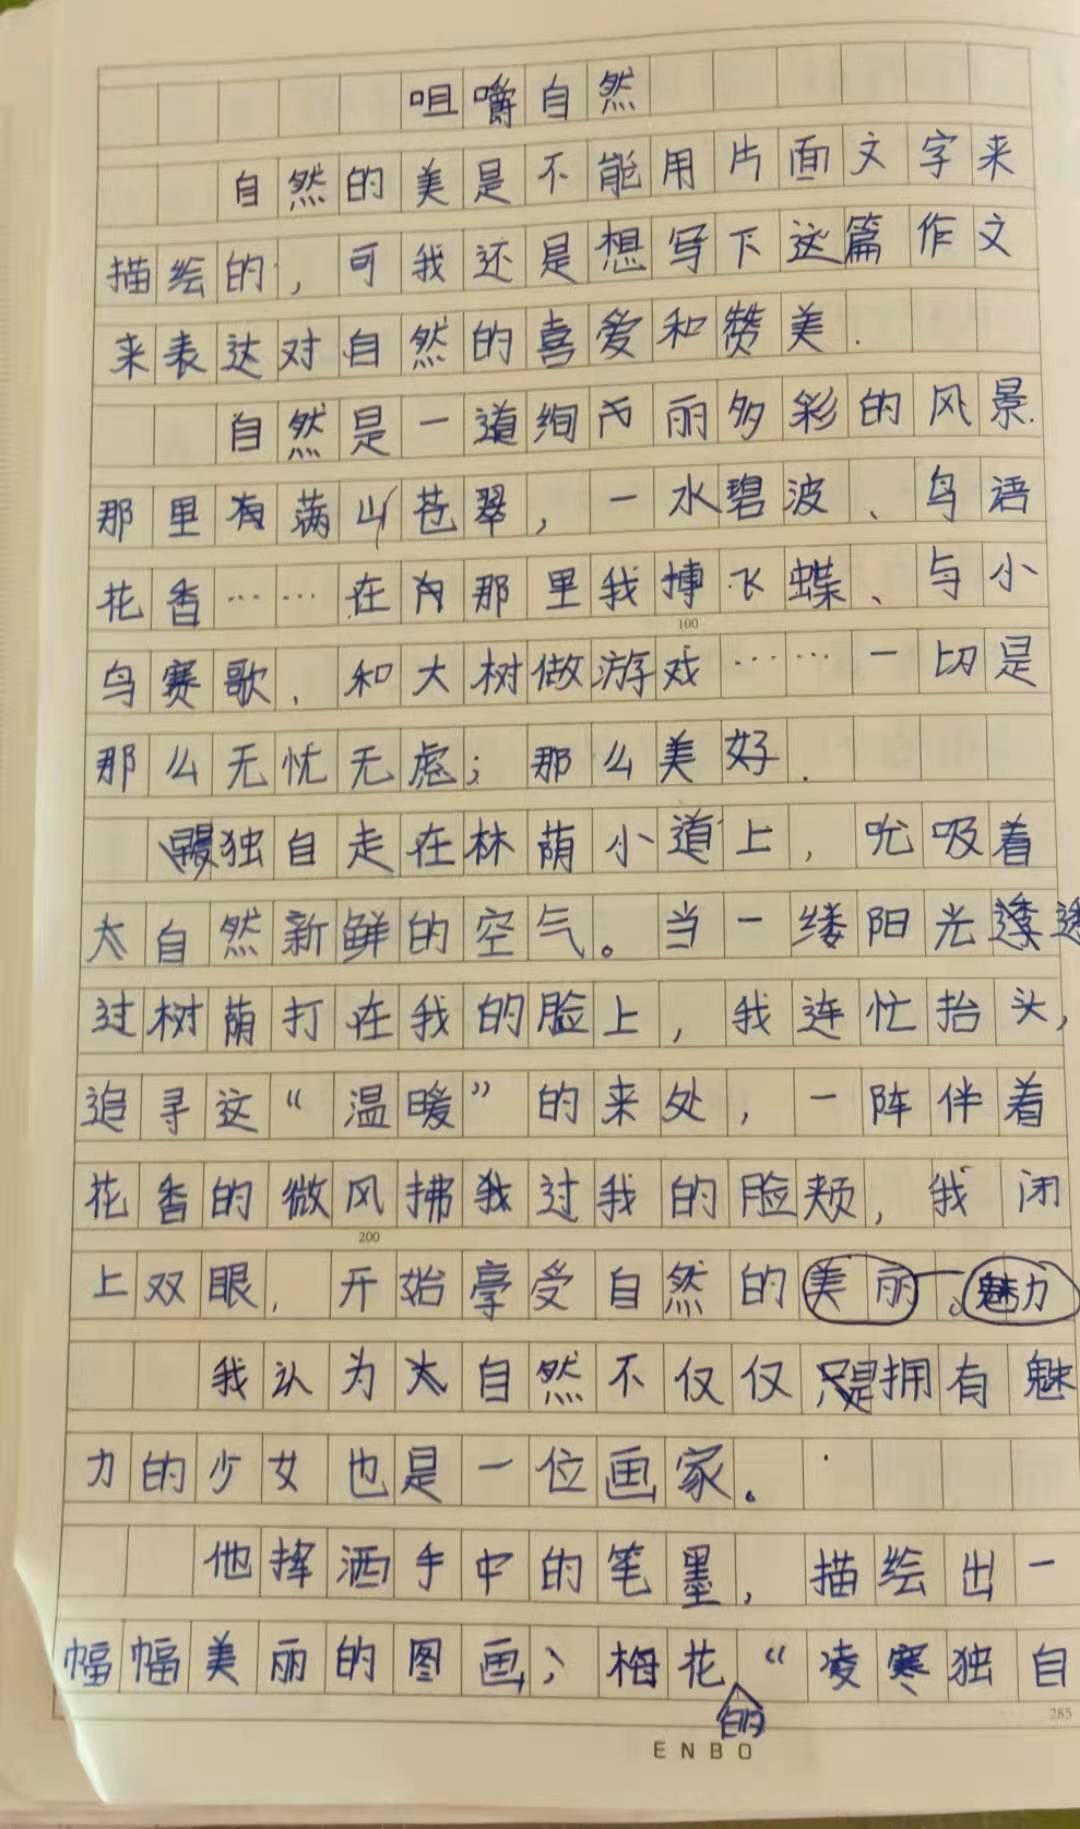 咀嚼自然
自然的美是不能用片面文字来
描绘的，可我还是想写下这篇作文
来表达对自然的喜爱和赞美.
自然是一道绚丽多彩的风景.
那里有满山苍翠，一水碧波、鸟语
花香……在那里我搏飞蝶、与小
鸟赛歌、和大树做游戏……一切是
那么无忧无虑；那么美好.
独自走在林荫小道上，吮吸着
大自然新鲜的空气。当一缕阳光透
过树荫打在我的脸上，我连忙抬头，
追寻这“温暖”的来处，一阵伴着
花香的微风拂过我的脸颊，我闭
上双眼，开始享受自然的美丽。魅力
我认为大自然不仅仅是拥有魅
力的少女也是一位画家。
他挥洒手中的笔墨，描绘出一
幅幅美丽的图画；梅花的“凌寒独自
100
200
285
ENBO